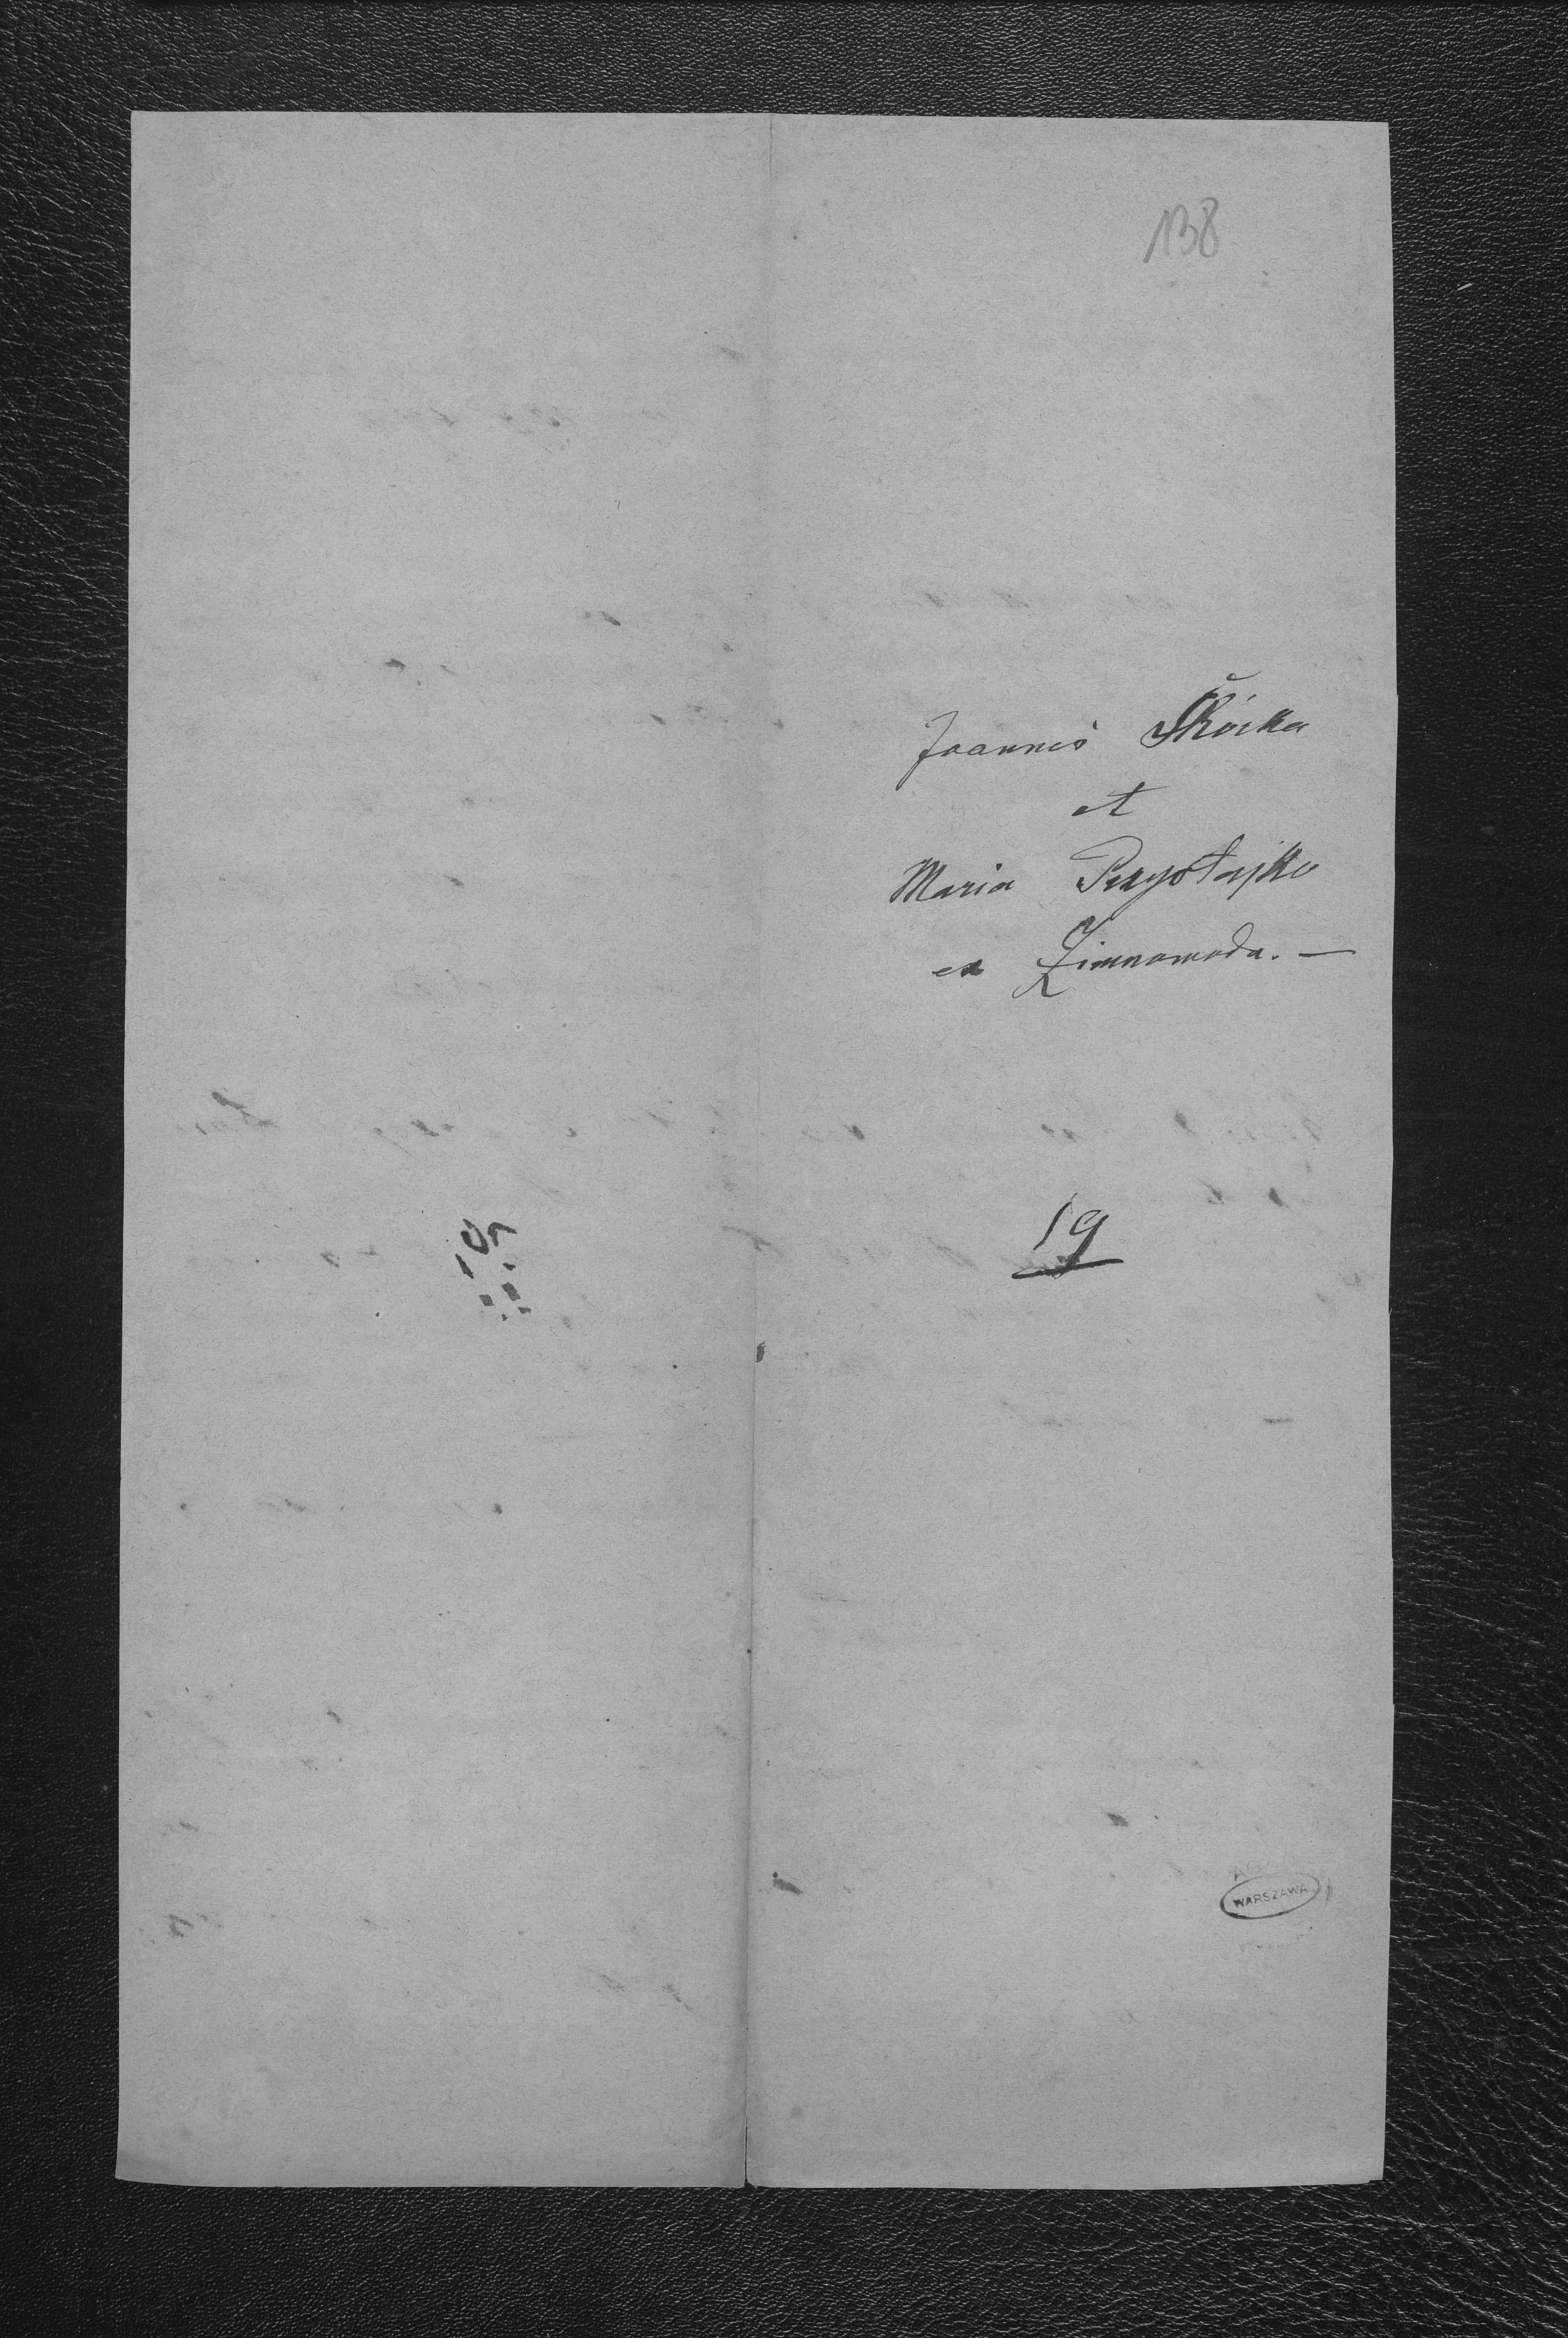 138
Joannes Skórka
et
Maria Przystajko
ex Zimnawoda. —
19
WARSZAWA